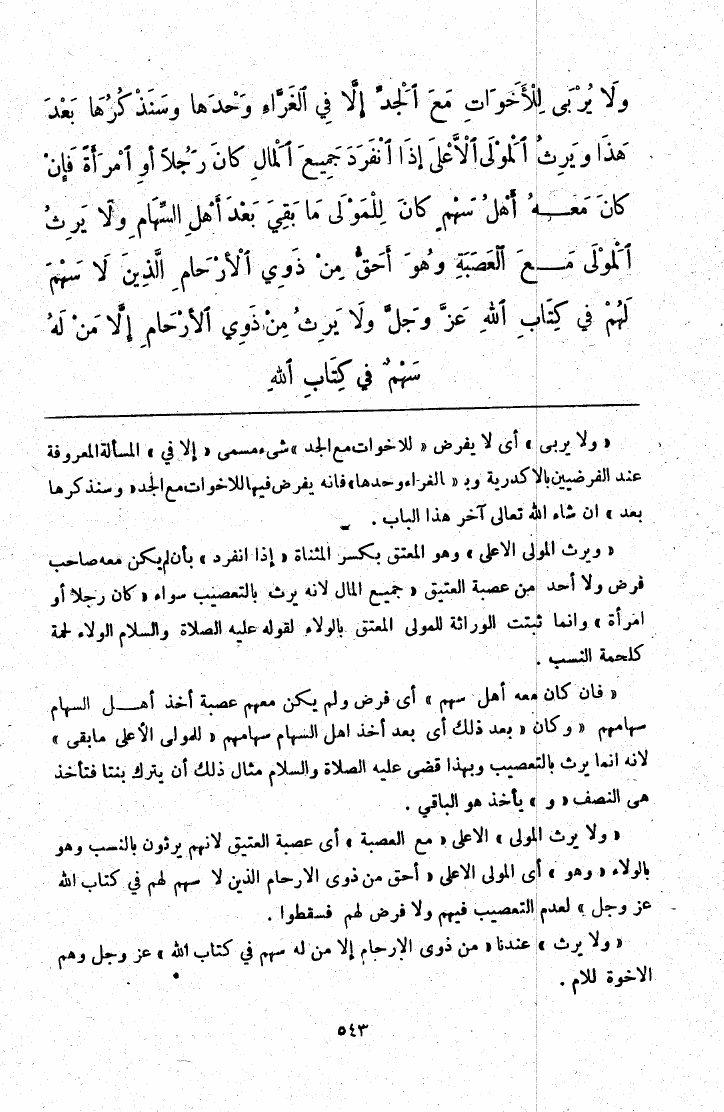 وَلَا يُرْبَى لِلْأَخَوَاتِ مَعَ ٱلْجَدِّ إِلَّا فِي ٱلْغَرَّاءِ وَحْدَهَا وَسَنَذْكُرُهَا بَعْدَ
هَذَا وَيَرِثُ ٱلْمَوْلَى ٱلْأَعْلَى إِذَا ٱنْفَرَدَ جَمِيعَ ٱلْمَالِ كَانَ رَجُلاً أَوِ ٱمْرَأَةً فَإِنْ
كَانَ مَعَـــهُ أَهْلُ سَهْمٍ كَانَ لِلْمَوْلَى مَا بَقِيَ بَعْدَ أَهْلِ السِّهَامِ وَلَا يَرِثُ
ٱلْمَوْلَى مَـــعَ ٱلْعَصَبَةِ وَهُوَ أَحَقُّ مِنْ ذَوِي ٱلْأَرْحَامِ الَّذِينَ لَا سَهْمَ
لَهُمْ فِي كِتَابِ ٱللهِ عَزَّ وَجَلَّ وَلَا يَرِثُ مِنْ ذَوِي ٱلأَرْحَامِ إِلَّا مَنْ لَهُ
سَهْمٌ فِي كِتَابِ ٱللهِ
« ولا يربى » أى لا يفرض « للاخوات مع الجد » شىء مسمى « إلا في » المسألة المعروفة
عند الفرضيين بالاكدرية وبـ « الغراء وحدها » فانه يفرض فيها للاخوات مع الجد « وسنذكرها
بعد » ان شاء الله تعالى آخر هذا الباب .
« ويرث المولى الاعلى » وهو المعتق بكسر المثناة « إذا انفرد » بأن لم يكن معه صاحب
فرض ولا أحد من عصبة العتيق « جميع المال لانه يرث بالتعصيب سواء « كان رجلا أو
امرأة » وانما ثبتت الوراثة للمولى المعتق بالولاء لقوله عليه الصلاة والسلام الولاء لحمة
كلحمة النسب .
« فان كان معه أهل سهم » أى فرض ولم يكن معهم عصبة أخذ أهـــل السهام
سهامهم « و كان « بعد ذلك أى بعد أخذ اهل السهام سهامهم « للمولى الأعلى مابقى »
لانه انما يرث بالتعصيب وبهذا قضى عليه الصلاة والسلام مثال ذلك أن يترك بنتا فتأخذ
هى النصف « و » يأخذ هو الباقي .
« ولا يرث المولى » الاعلى « مع العصبة » أى عصبة العتيق لانهم يرثون بالنسب وهو
بالولاء « وهو » أى المولى الاعلى « أحق من ذوى الارحام الذين لا سهم لهم في كتاب الله
عز وجل » لعدم التعصيب فيهم ولا فرض لهم فسقطوا .
« ولا يرث » عندنا « من ذوى الارحام إلا من له سهم في كتاب الله » عز وجل وهم
الاخوة للام .
٥٤٣